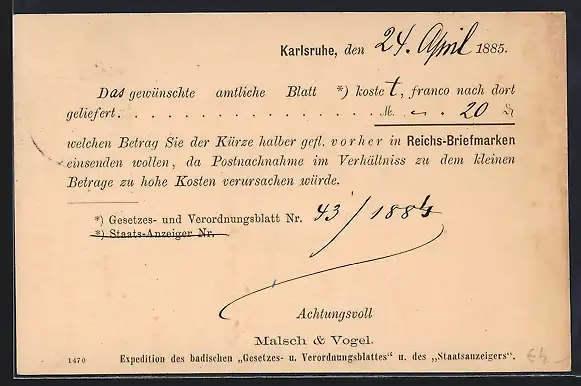 Karlsruhe, den 24. April 1885.
Das gewünschte amtliche Blatt *) kostet, franco nach dort
geliefert. . . . . . . . . . . . . . . . . . . M. — . 20 ₰
welchen Betrag Sie der Kürze halber gefl. vorher in Reichs-Briefmarken
einsenden wollen, da Postnachnahme im Verhältniss zu dem kleinen
Betrage zu hohe Kosten verursachen würde.
*) Gesetzes- und Verordnungsblatt Nr. 43/1884
*) Staats-Anzeiger Nr.
Achtungsvoll
Malsch & Vogel.
1470 Expedition des badischen „Gesetzes- u. Verordnungsblattes" u. des „Staatsanzeigers".